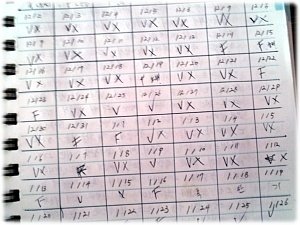 12/2 12/3 12/4 12/5 12/6 12/7 12/8
VX VX VX VX VX VX VX
12/9 12/10 12/11 12/12 12/13 12/14 12/15
VX VX VX VX VX F F
12/16 12/17 12/18 12/19 12/20 12/21 12/22
VX VX VX VX VX F
12/23 12/24 12/25 12/26 12/27 12/28 12/29
F VX V V VX VX VX
12/30 12/31 1/1 1/2 1/3 1/4 1/5
VX F F VX VX V VX
1/6 1/7 1/8 1/9 1/10 1/11 1/12
VX VX V VX VX X
1/13 1/14 1/15 1/16 1/17 1/18 1/19
F V X F
1/20 1/21 1/22 1/23 1/24 1/25 1/26